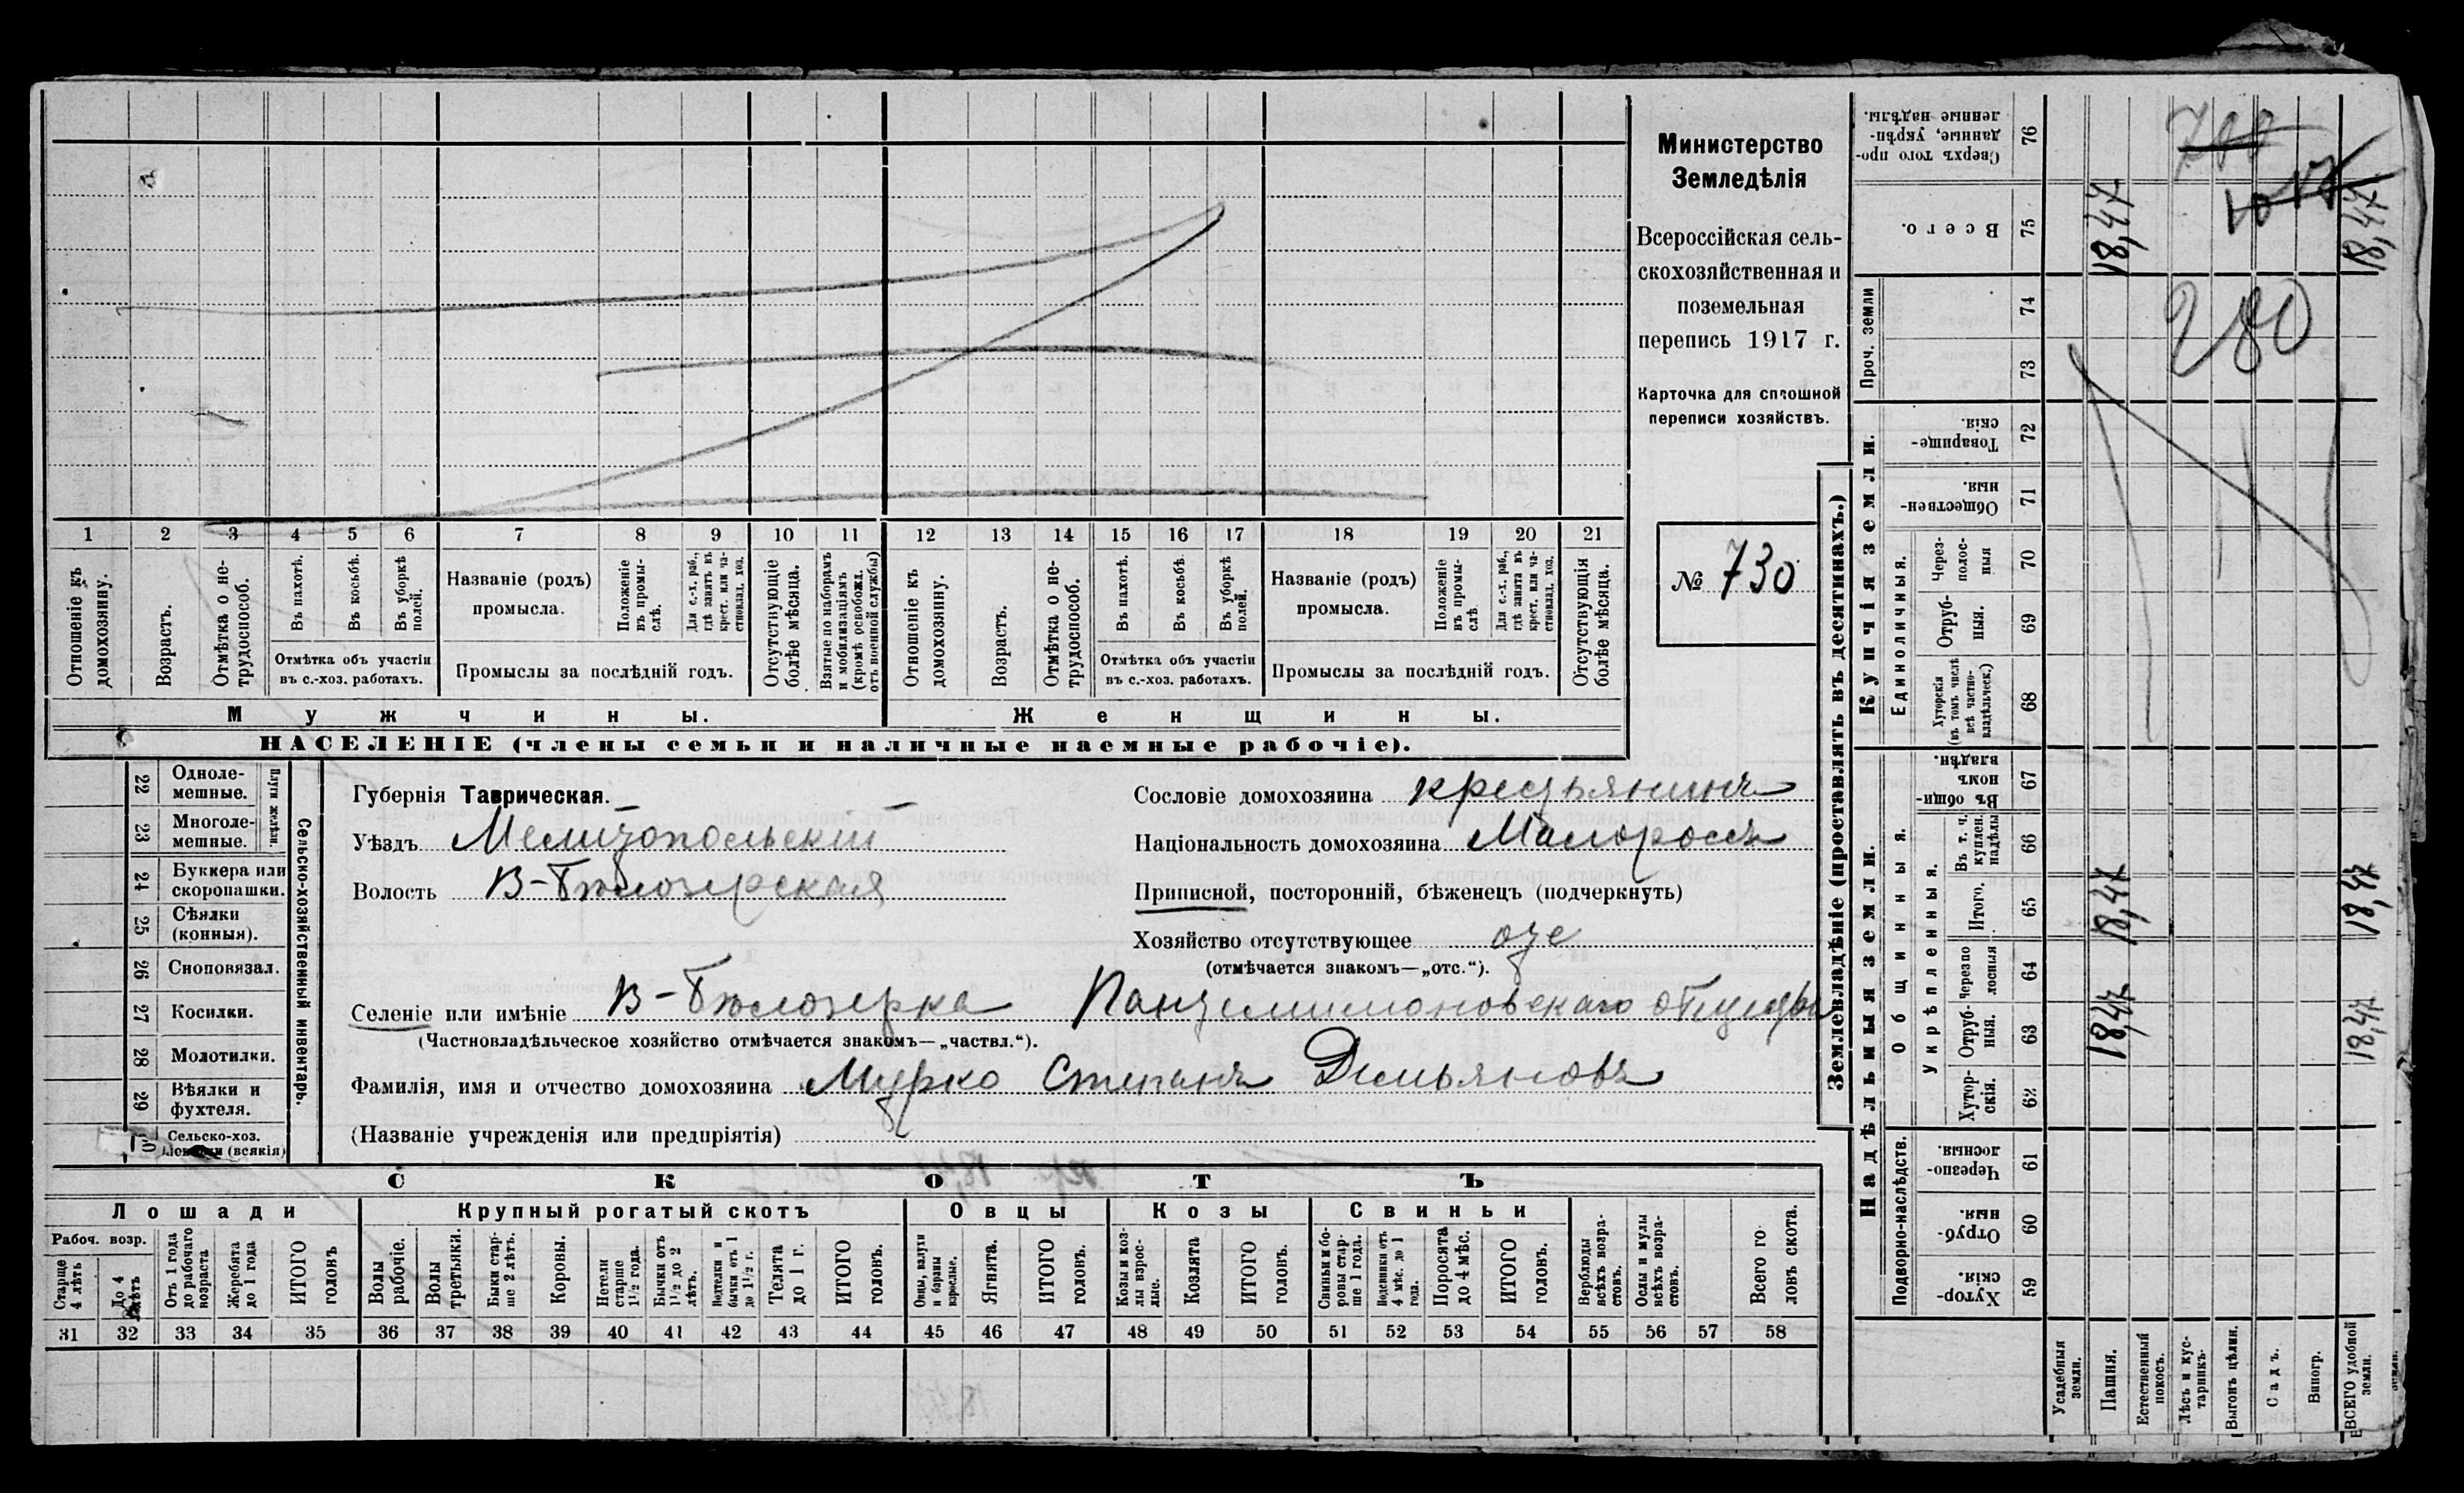 Министерство
Земледѣлія
Всероссійская сель-
скохозяйственная и
поземельная
перепись 1917 г.
Карточка для сплошной
переписи хозяйствъ.
№ 730
1 2 3 4 5 6 7 8 9 10 11 12 13 14 15 16 17 18 19 20 21
Отношеніе къ домохозяину.
Возрастъ.
Отмѣтка о не-трудоспособ.
Въ пахотѣ.
Въ косьбѣ.
Въ уборкѣ полей.
Отмѣтка объ участіи
въ с.-хоз. работахъ.
Названіе (родъ)
промысла.
Положеніе въ промы-слѣ.
Для с.-х. раб., гдѣ занятъ въ крест. или ча-стновлад. хоз.
Промыслы за послѣдній годъ.
Отсутствующіе болѣе мѣсяца.
Взятые по наборамъ и мобилизаціямъ (кромѣ освобожд. отъ военной службы)
Отношеніе къ домохозяину.
Возрастъ.
Отмѣтка о не-трудоспособ.
Въ пахотѣ.
Въ косьбѣ.
Въ уборкѣ полей.
Отмѣтка объ участіи
въ с.-хоз. работахъ.
Названіе (родъ)
промысла.
Положеніе въ промы-слѣ.
Для с.-х. раб., гдѣ занята въ крест. или ча-стновлад. хоз.
Промыслы за послѣдній годъ.
Отсутствующія болѣе мѣсяца.
Мужчины.
Женщины.
НАСЕЛЕНІЕ (члены семьи и наличные наемные рабочіе).
22 Одноле-мешные.
Плуги желѣзн.
23 Многоле-мешные.
24 Буккера или скоропашки.
25 Сѣялки (конныя).
26 Сноповязал.
27 Косилки.
28 Молотилки.
29 Вѣялки и фухтеля.
Сельско-хоз. (всякія)
Сельско-хозяйственный инвентарь.
Губернія Таврическая.
Уѣздъ Мелитопольский
Волость В-Бѣлозерская
Сословіе домохозяина крестьянинъ
Національность домохозяина Малороссъ
Приписной, посторонній, бѣженецъ (подчеркнуть)
Хозяйство отсутствующее отс
(отмѣчается знакомъ—„отс.“).
Селеніе или имѣніе В-Бѣлозерка Пантелимоновскаго
(Частновладѣльческое хозяйство отмѣчается знакомъ—„частвл.“).
Фамилія, имя и отчество домохозяина Мурко Степанъ Демьяновъ
(Названіе учрежденія или предпріятія)
СКОТЪ
Лошади
Крупный рогатый скотъ
Овцы
Козы
Свиньи
Рабоч. возр.
Старше 4 лѣтъ
До 4 лѣтъ
Отъ 1 года до рабочаго возраста
Жеребята до 1 года
ИТОГО головъ
Волы рабочіе.
Волы третьяки.
Быки стар-ше 2 лѣтъ.
Коровы.
Нетели старше 1½ года.
Бычки отъ 1½ до 2 лѣтъ.
Подтелки и бычки отъ 1 до 1½ г.
Телята до 1 г.
ИТОГО головъ.
Овцы, валухи и бараны взрослые.
Ягнята.
ИТОГО головъ.
Козы и коз-лы взрос-лые.
Козлята
ИТОГО головъ.
Свиньи и бо-ровы стар-ше 1 года.
Подсвинки отъ 4 мѣс. до 1 года.
Поросята до 4 мѣс.
ИТОГО головъ.
Верблюды всѣхъ возра-стовъ.
Ослы и мулы всѣхъ возра-стовъ.
Всего го-ловъ скота.
31 32 33 34 35 36 37 38 39 40 41 42 43 44 45 46 47 48 49 50 51 52 53 54 55 56 57 58
Землевладѣніе (проставлять въ десятинахъ.)
Купчія земли.
Надѣльныя земли.
Сверхъ того про-данные, укрѣп-ленные надѣлы. 76
Всего. 75 18,47 18,47
Проч. земли
74
73
280
Товарище-скія. 72
Обществен-ныя. 71
Единоличныя.
Через-полос-ныя 70
Отруб-ныя. 69
Хуторскія (въ томъ числѣ всѣ частно-владѣльческ.) 68
Общинныя.
Въ общин-номъ владѣн. 67
Укрѣпленныя.
Въ т. ч. куплен. надѣлы 66
Итого. 65 18,47 18,47
Черезпо лосныя 64
Отруб-ныя. 63 18,47 18,47
Хутор-скія. 62
Подворно-наслѣдств.
Черезпо-лосныя. 61
Отруб-ныя. 60
Хутор-скія. 59
Усадебныя земли.
Пашня.
Естественный покосъ.
Лѣсъ и кус-тарникъ.
Выгонъ цѣлин.
Садъ.
Виногр.
ВСЕГО удобной земли.